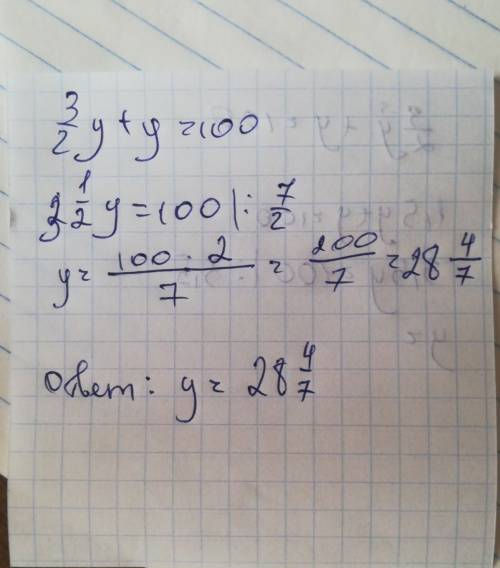 3/2 y + y = 100
3 1/2 y = 100 | : 7/2
y = (100 · 2)/7 = 200/7 = 28 4/7
Ответ: y = 28 4/7